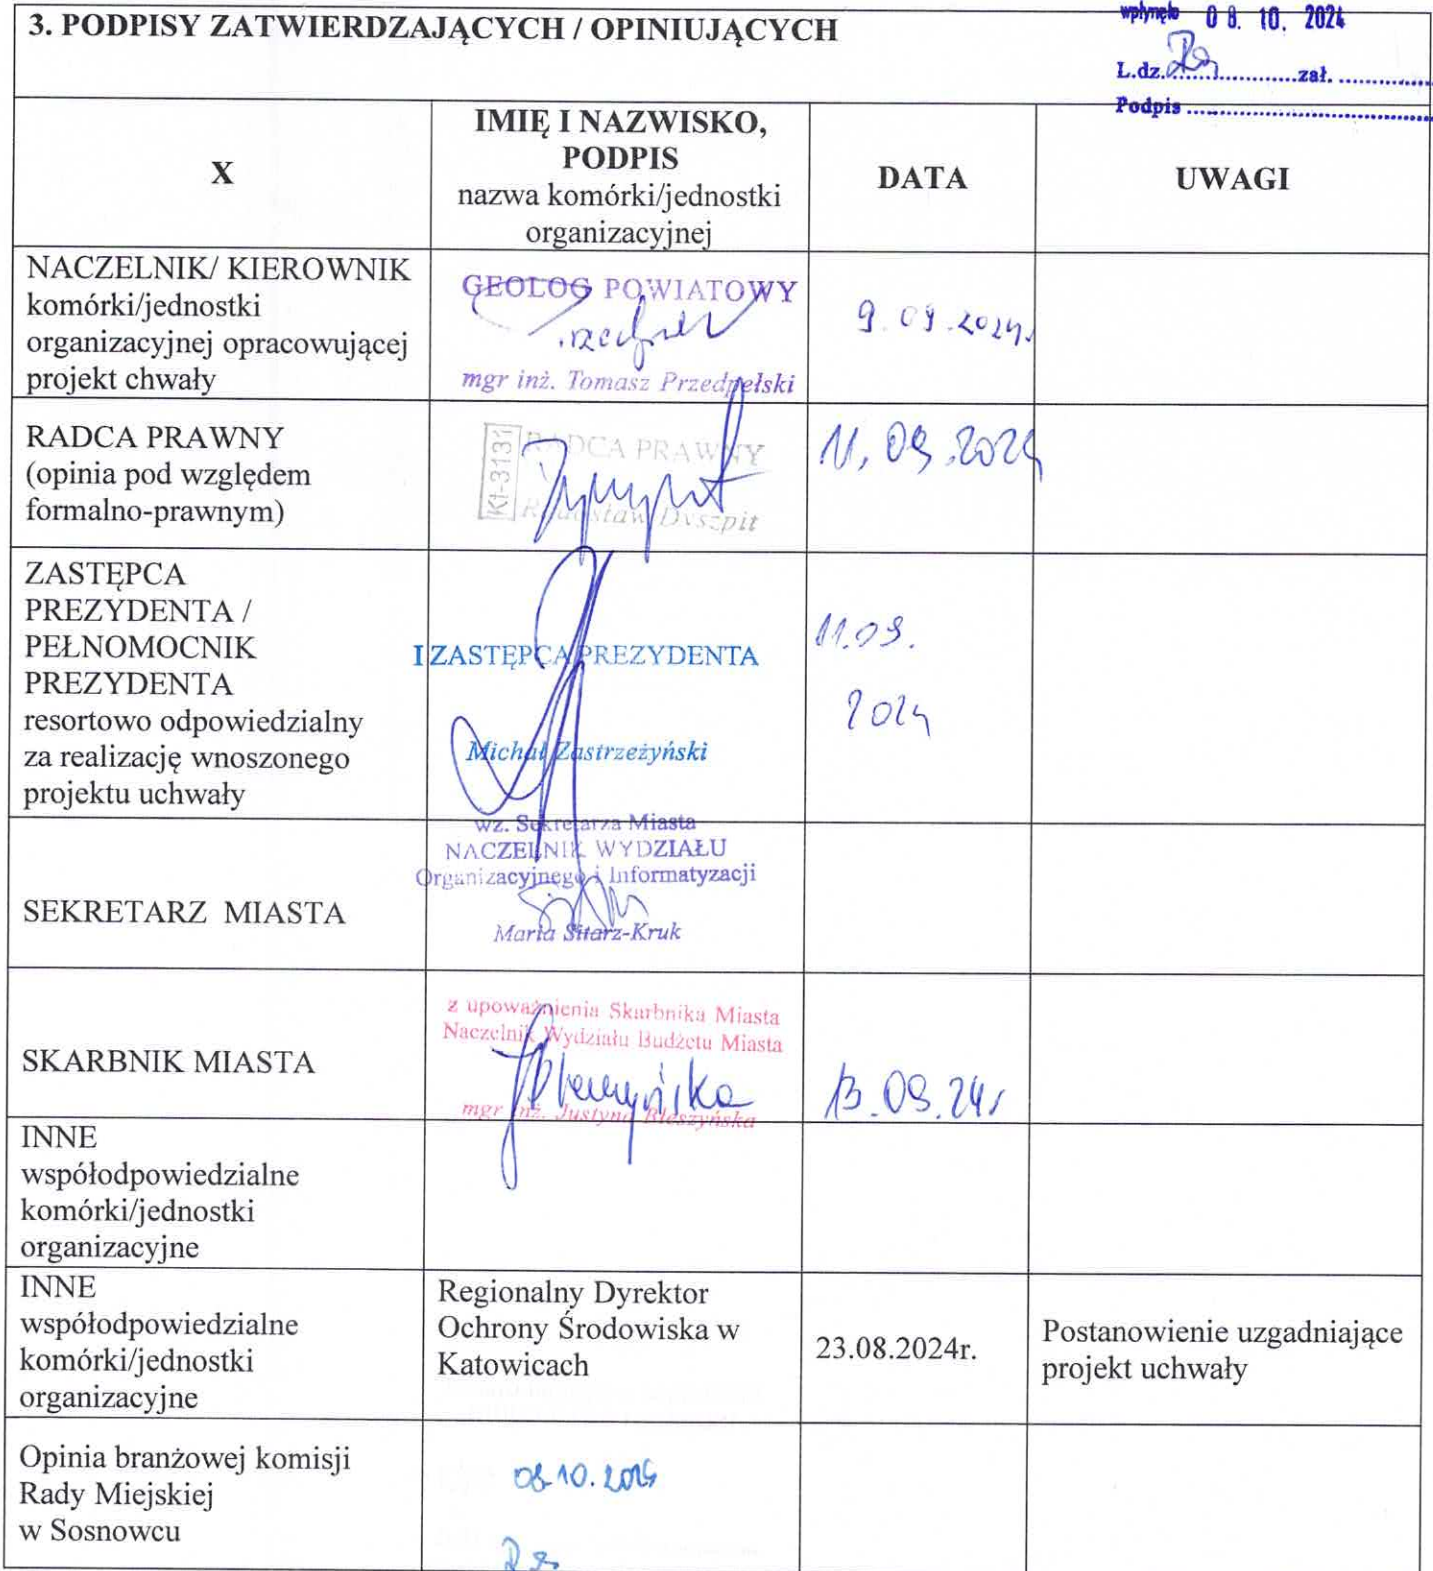 3. PODPISY ZATWIERDZAJĄCYCH / OPINIUJĄCYCH
wpłynęło 08. 10. 2024
L.dz. ............... zał. ...............
Podpis ...............
X
IMIĘ I NAZWISKO,
PODPIS
nazwa komórki/jednostki
organizacyjnej
DATA
UWAGI
NACZELNIK/ KIEROWNIK
komórki/jednostki
organizacyjnej opracowującej
projekt chwały
GEOLOG POWIATOWY
mgr inż. Tomasz Przedpełski
9.09.2024r
RADCA PRAWNY
(opinia pod względem
formalno-prawnym)
Kt-3131
RADCA PRAWNY
Radosław Dyszpit
11.09.2024
ZASTĘPCA
PREZYDENTA /
PEŁNOMOCNIK
PREZYDENTA
resortowo odpowiedzialny
za realizację wnoszonego
projektu uchwały
I ZASTĘPCA PREZYDENTA
Michał Zastrzeżyński
11.09.
2024
SEKRETARZ MIASTA
wz. Sekretarza Miasta
NACZELNIK WYDZIAŁU
Organizacyjnego i Informatyzacji
Maria Sitarz-Kruk
SKARBNIK MIASTA
z upoważnienia Skarbnika Miasta
Naczelnik Wydziału Budżetu Miasta
mgr inż. Justyna Bleszyńska
13.09.24r
INNE
współodpowiedzialne
komórki/jednostki
organizacyjne
INNE
współodpowiedzialne
komórki/jednostki
organizacyjne
Regionalny Dyrektor
Ochrony Środowiska w
Katowicach
23.08.2024r.
Postanowienie uzgadniające
projekt uchwały
Opinia branżowej komisji
Rady Miejskiej
w Sosnowcu
08.10.2024